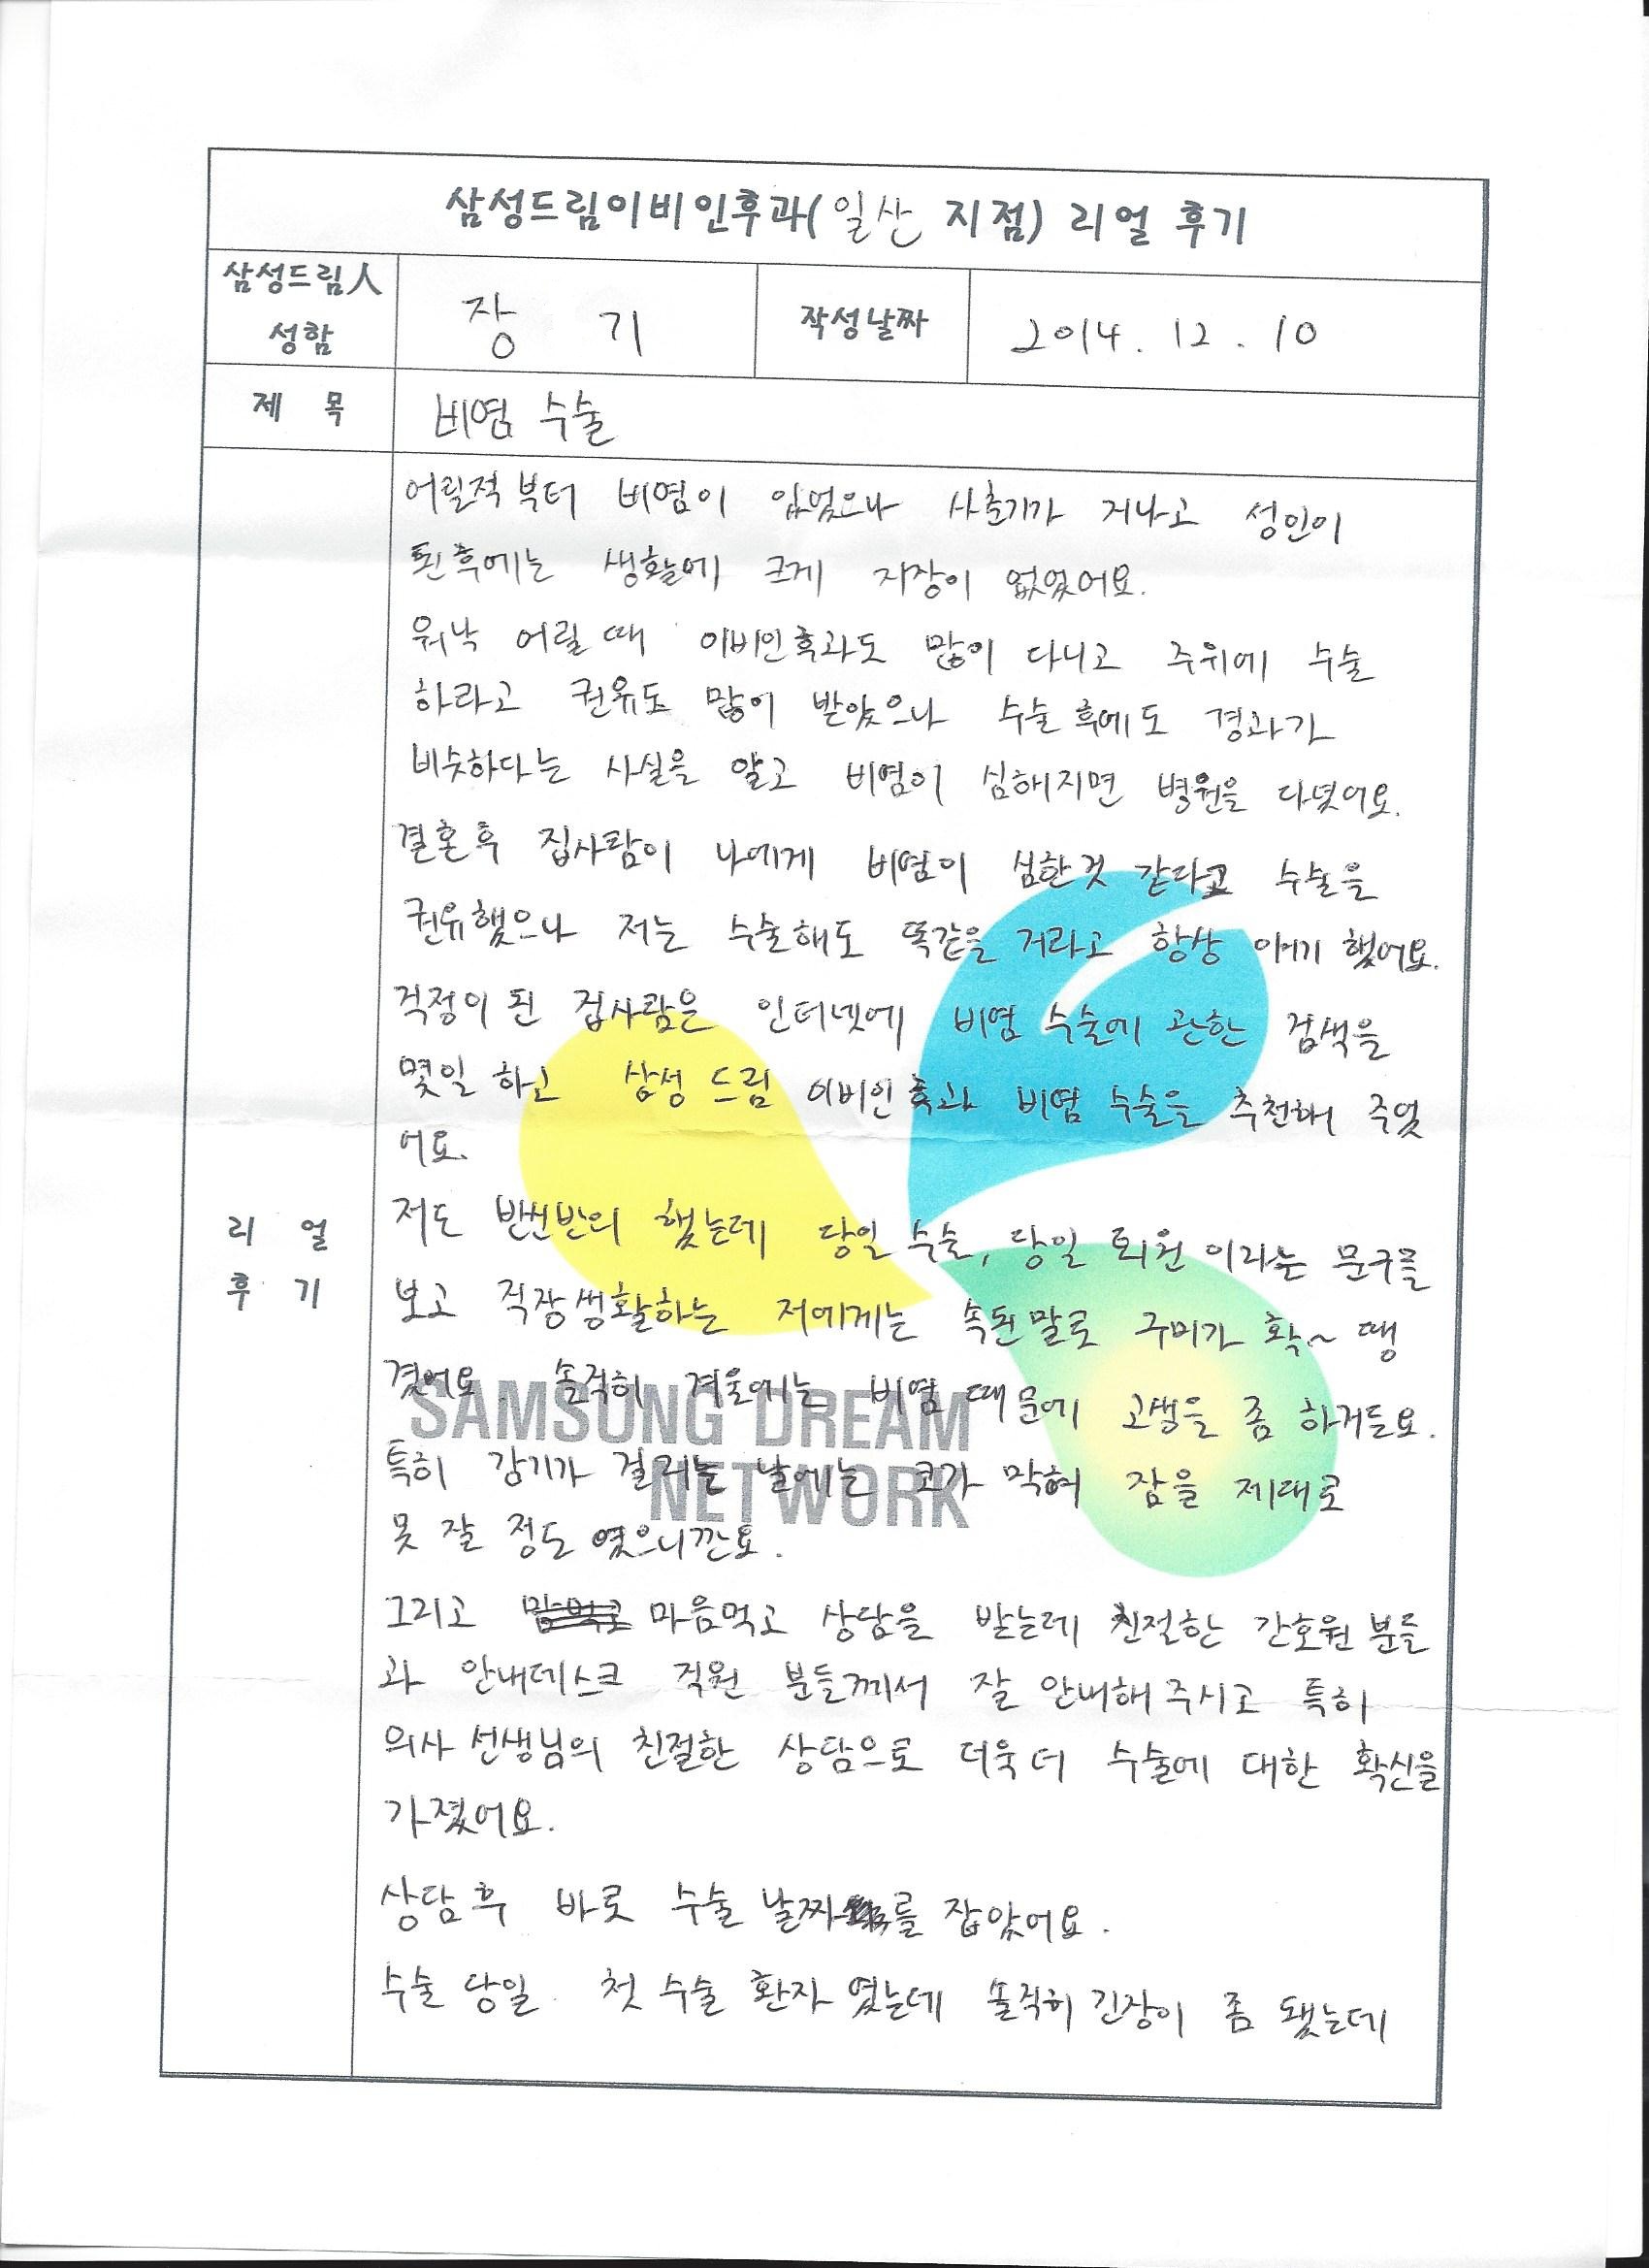 삼성드림이비인후과(일산 지점) 리얼 후기
삼성드림人
성함
장 기
작성날짜
2014. 12. 10
제 목
비염 수술
어릴적 부터 비염이 있었으나 사춘기가 지나고 성인이
된후에는 생활에 크게 지장이 없었어요.
워낙 어릴 때 이비인후과도 많이 다니고 주위에 수술
하라고 권유도 많이 받았으나 수술 후에도 경과가
비슷하다는 사실을 알고 비염이 심해지면 병원을 다녔어요.
결혼후 집사람이 나에게 비염이 심한것 같다고 수술을
권유했으나 저는 수술해도 똑같을 거라고 항상 얘기 했어요.
걱정이 된 집사람은 인터넷에 비염 수술에 관한 검색을
몇일 하고 삼성 드림 이비인후과 비염 수술을 추천해 주었
어요.
저도 반신반의 했는데 당일 수술, 당일 퇴원 이라는 문구를
보고 직장생활하는 저에게는 속된말로 구미가 확~ 땡
겼어요. 솔직히 겨울에는 비염 때문에 고생을 좀 하거든요.
특히 감기가 걸리는 날에는 코가 막혀 잠을 제대로
못 잘 정도 였으니깐요.
그리고 마음먹고 상담을 받는데 친절한 간호원 분들
과 안내데스크 직원 분들께서 잘 안내해 주시고 특히
의사 선생님의 친절한 상담으로 더욱 더 수술에 대한 확신을
가졌어요.
상담후 바로 수술 날짜를 잡았어요.
수술 당일 첫 수술 환자 였는데 솔직히 긴장이 좀 됐는데
리 얼
후 기
SAMSUNG DREAM
NETWORK